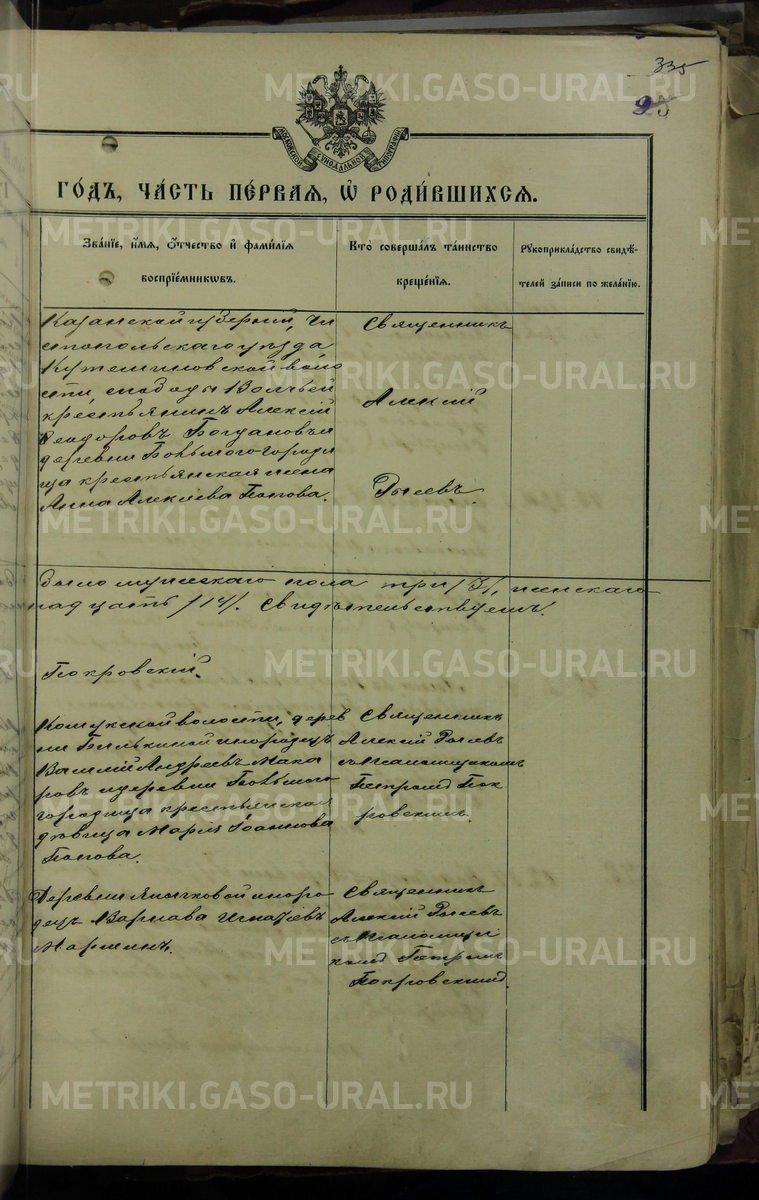 335
95
МОСКОВСКОЙ СѴНОДАЛЬНОЙ ТИПОГРАФІИ
ГО́ДЪ, ЧА́СТЬ ПЕ́РВАЯ, Ѿ РОДИ́ВШИХСЯ.
Зва́ніе, и҆́мя, ѻ҆́тчество и҆ фами́лїя
воспрїе́мниковъ.
Кто̀ соверша́лъ та́инство
креще́нїя.
Рукоприкла́дство свидѣ́-
телей за́писи по жела́нїю.
Казанской губерніи, Чи
стопольскаго уѣзда
Кутеминовской воло
сти, слободы Волчьей
крестьянинъ Алексій
Ѳеодоровъ Богдановъ и
деревни Бовьмого городи
ща крестьянская жена
Анна Алексіева Попова.
Священникъ
Алексій
Рысевъ.
было мужескаго пола три /3/, женскаго
надцать /14/. Свидѣтельствуемъ:
Покровскій.
волости, дерев
ни Билькиной инородецъ
Василій Андреевъ Мака
ровъ и деревни
городища крестьянская
дѣвица Марія Іоаннова
Попова.
Священникъ
Алексій Рысевъ
съ псаломщикомъ
Петромъ Пок
ровскимъ.
Деревни Янычковой иноро
децъ Варнава Игнатіевъ
Маршинъ.
Священникъ
Алексій Рысевъ
съ псаломщи
комъ Петромъ
Покровскимъ.
METRIKI.GASO-URAL.RU